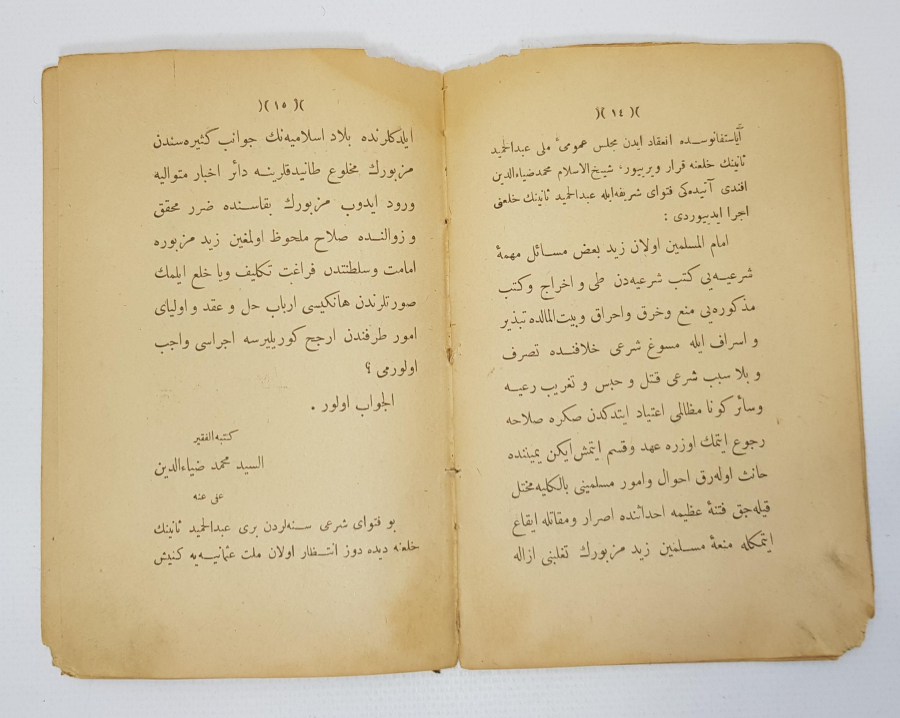 )( ١٤ )(
آیاستفانوسده انعقاد ایدن مجلس عمومئ ملی عبدالحمید
ثانینك خلعنه قرار ویریییور، شیخ‌الاسلام محمد ضیاءالدین
افندی آتیده‌کی فتوای شریفه‌ایله عبدالحمید ثانینك خلعنی
اجرا ایدییوردی :
امام المسلمین اولان زید بعض مسائل مهمهٔ
شرعیه‌یی کتب شرعیه‌دن طی و اخراج وکتب
مذکوره‌یی منع وخرق واحراق وبیت‌المالده تبذیر
و اسراف ایله مسوغ شرعی خلافنده تصرف
و بلا سبب شرعی قتل و حبس و تغریب رعیه
وسائر کونا مظالمی اعتیاد ایتدکدن صکره صلاحه
رجوع ایتمك اوزره عهد وقسم ایتمش ایکن یمیننده
حانث اوله‌رق احوال وامور مسلمینی بالکلیه مختل
قیله‌جق فتنهٔ عظیمه احداثنده اصرار ومقاتله ایقاع
ایتمکله منعهٔ مسلمین زید مزبورك تغلبنی ازاله
)( ١٥ )(
ایلدکلرنده بلاد اسلامیه‌نك جوانب کثیره‌سندن
مزبورك مخلوع طانیدقلرینه دائر اخبار متوالیه
ورود ایدوب مزبورك بقاسنده ضرر محقق
و زوالنده صلاح ملحوظ اولمغین زید مزبوره
امامت وسلطنتدن فراغت تکلیف ویا خلع ایلمك
صورتلرندن هانکیسی ارباب حل و عقد و اولیای
امور طرفندن ارجح کوریلیرسه اجراسی واجب
اولورمی ؟
الجواب اولور .
کتبه الفقیر
السید محمد ضیاءالدین
عفی عنه
بو فتوای شرعی سنه‌لردن بری عبدالحمید ثانینك
خلعنه دیده دوز انتظار اولان ملت عثمانیه‌یه کنیش